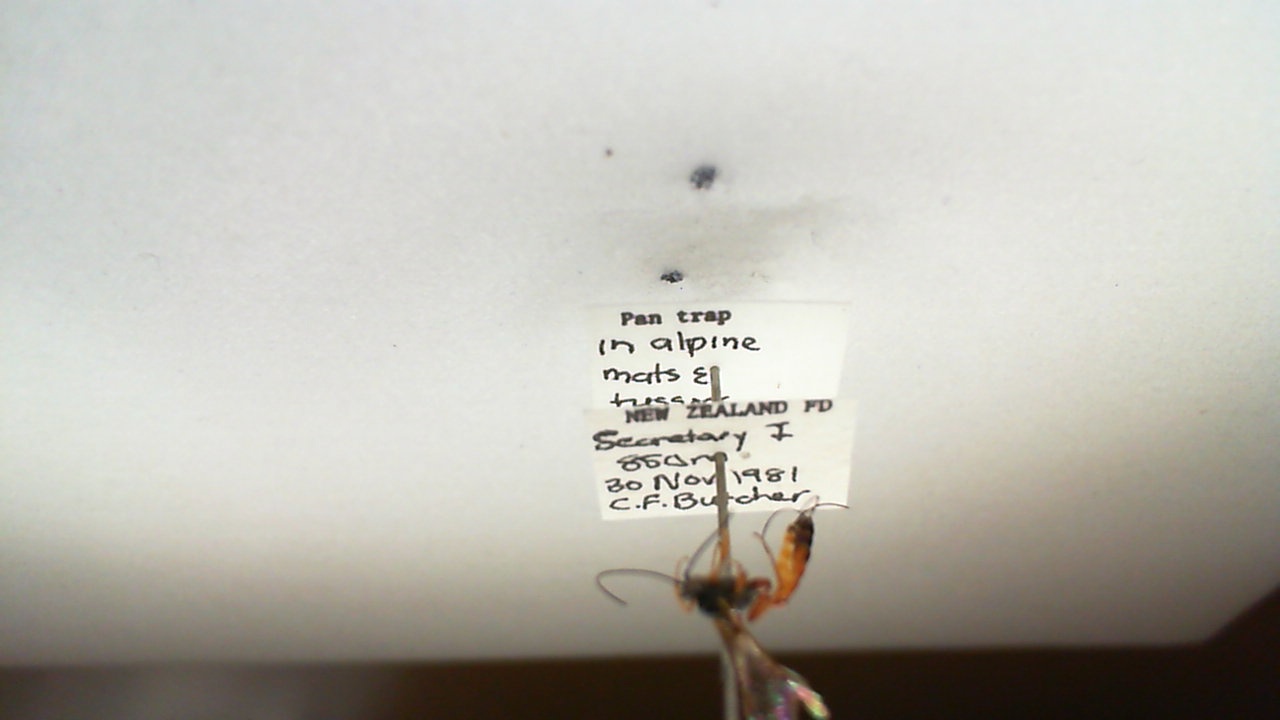 Pan trap
in alpine
mats &
NEW ZEALAND FD
Secretary I
850m
30 Nov 1981
C.F. Butcher